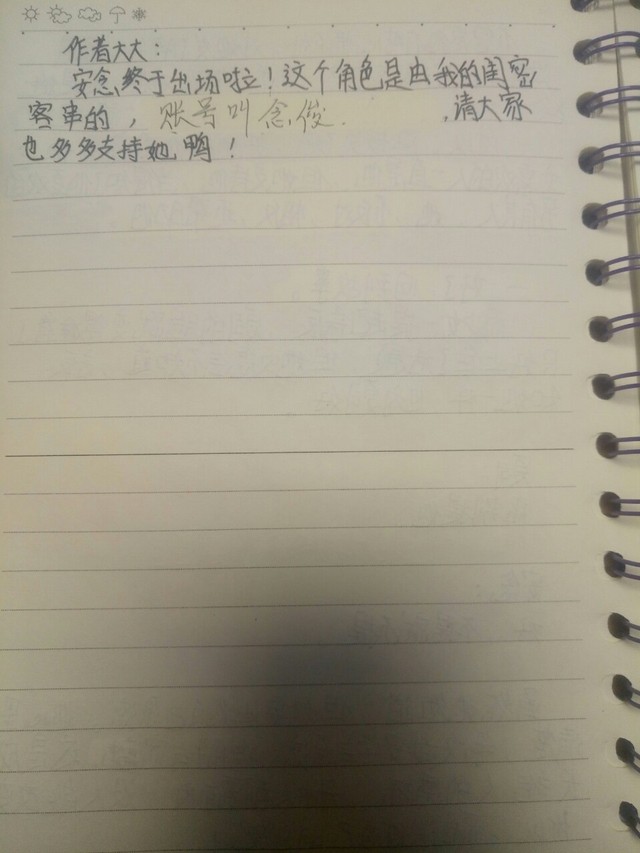 作者大大：
安念终于出场啦！这个角色是由我的闺密
客串的，账号叫念俊.，请大家
也多多支持她鸭！